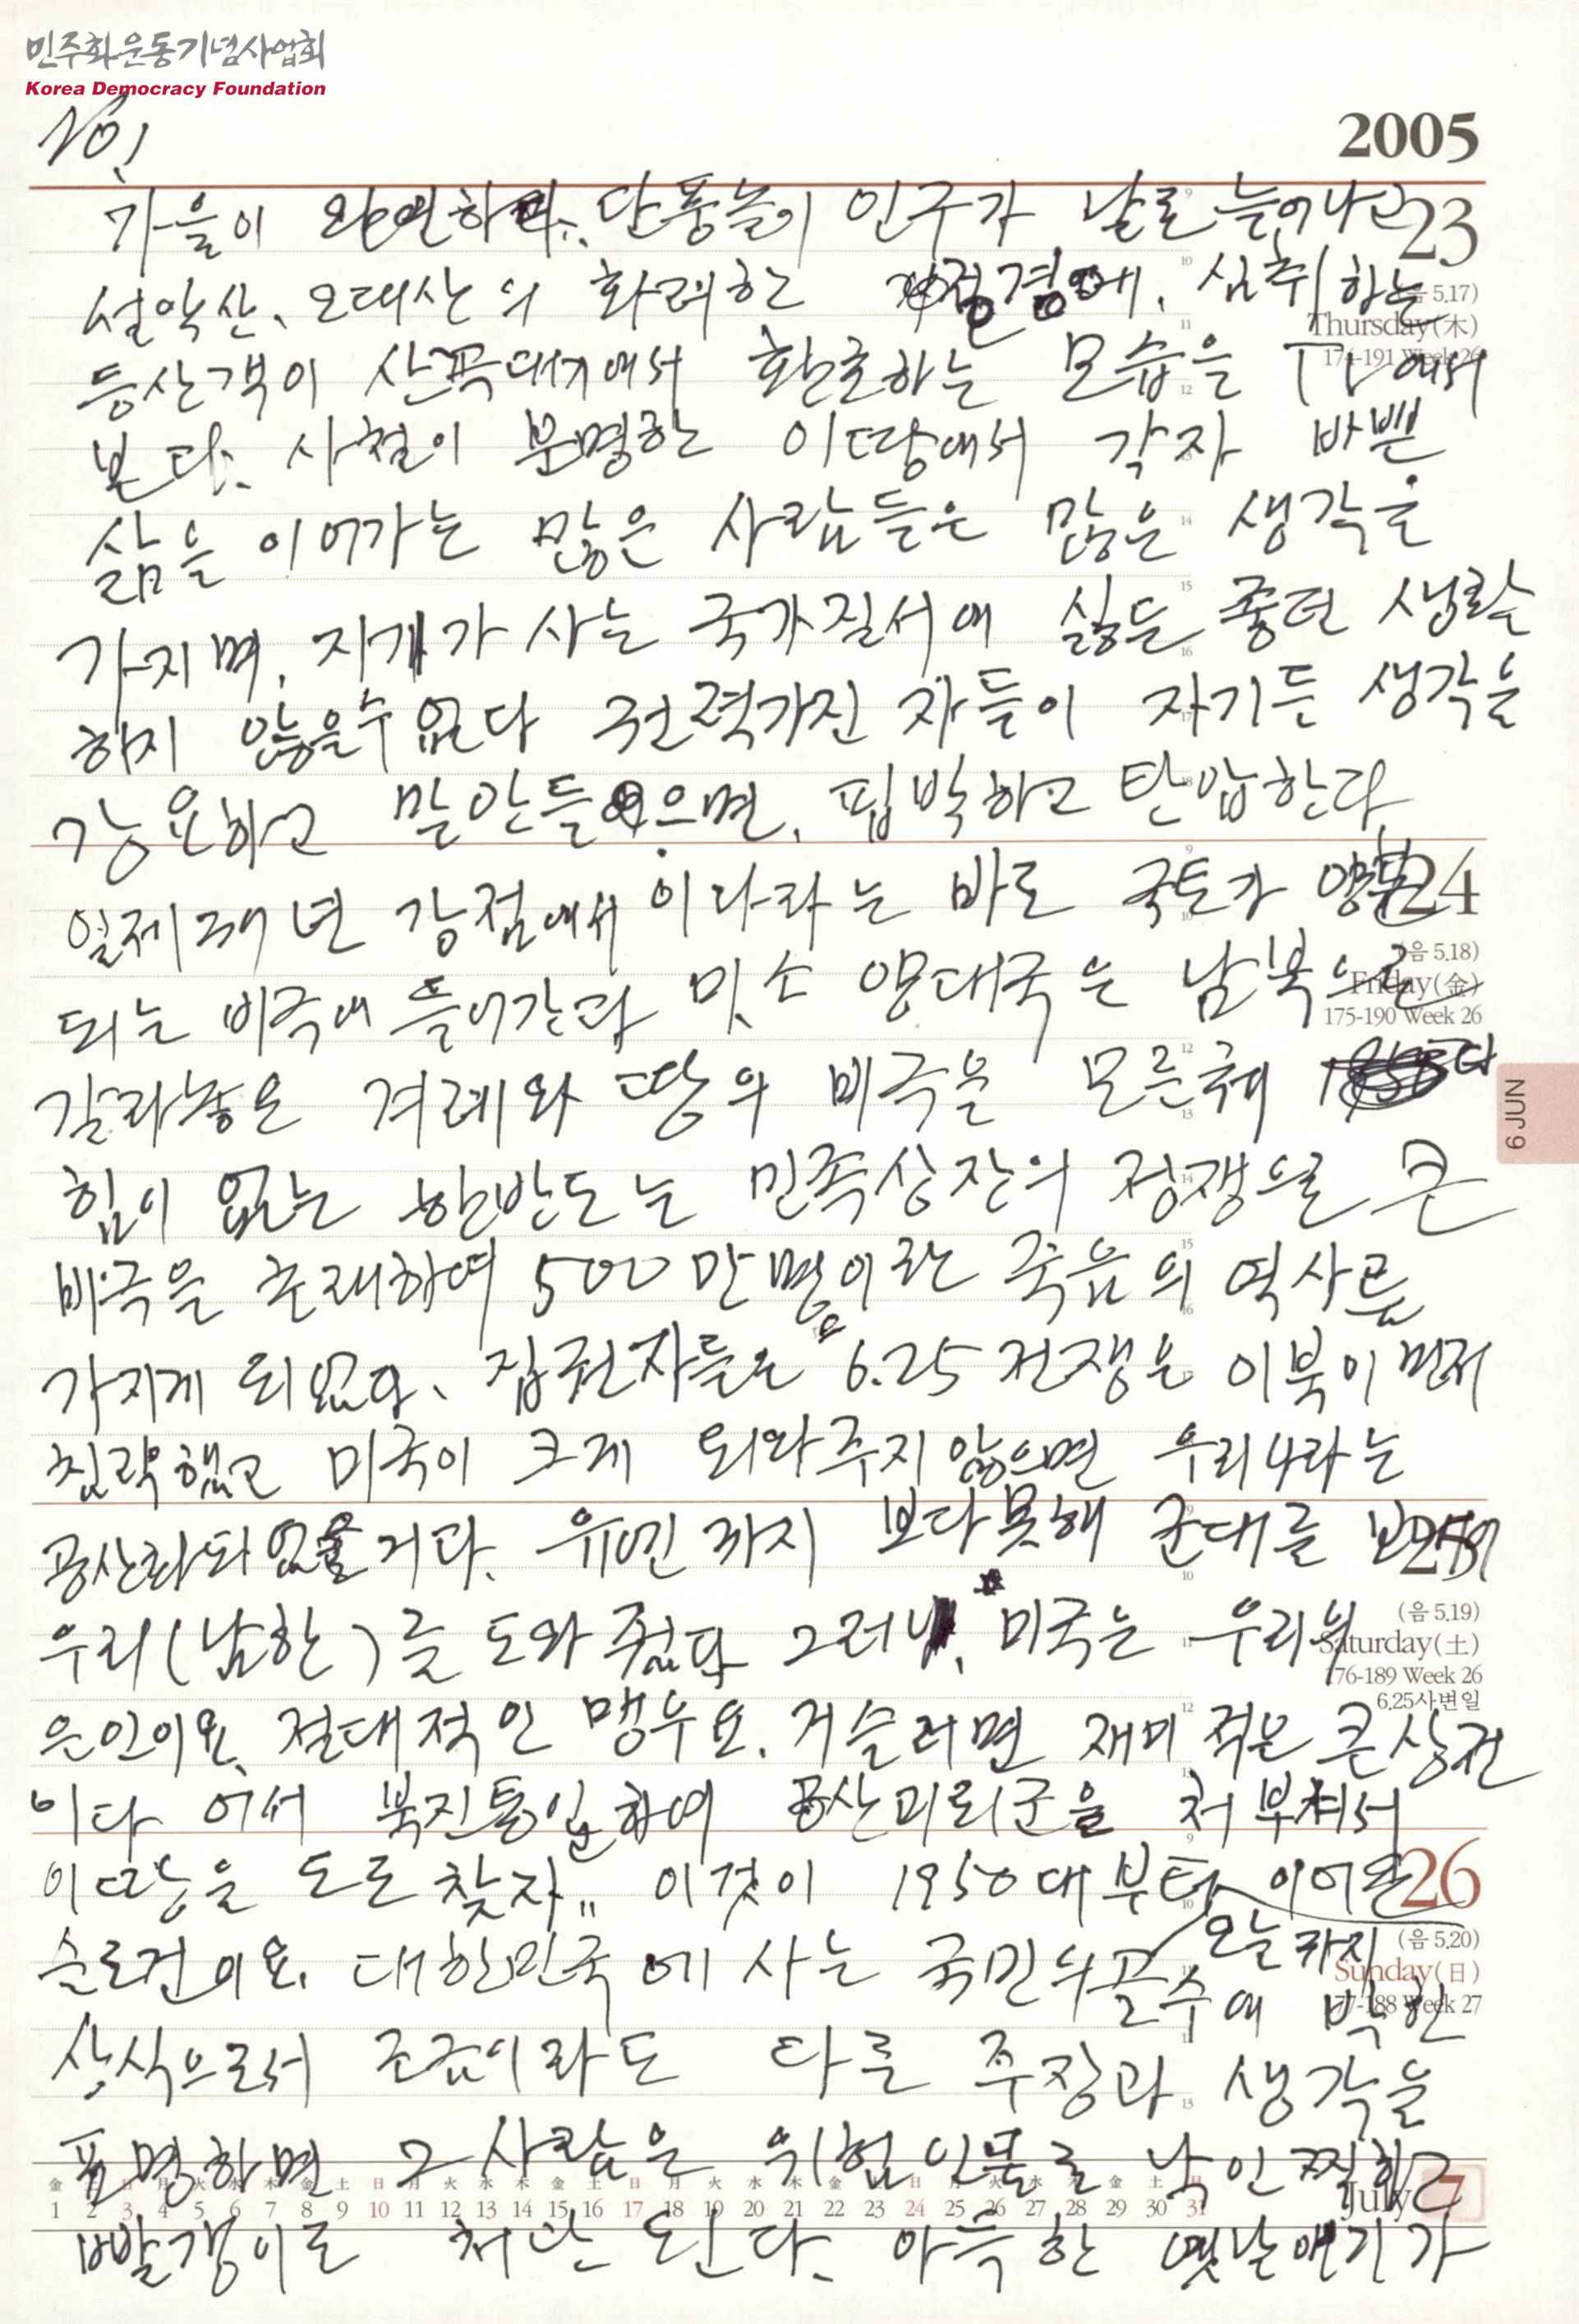 민주화운동기념사업회
Korea Democracy Foundation
No 1
2005
가을이 완연하다. 단풍놀이 인구가 날로 늘어나고
23
설악산、오대산의 화려한 절경에、심취하는
(음 5.17)
Thursday(木)
174-191 Week 26
등산객이 산꼭대기에서 환호하는 모습을 TV에서
본다、사철이 분명한 이땅에서 각자 바쁜
삶을 이어가는 많은 사람들은 많은 생각을
가지며、자기가 사는 국가질서에 싫든 좋던 생활
하지 않을수 없다 권력가진 자들이 자기든 생각을
강요하고 말안들으면、핍박하고 탄압한다
일제 36년 강점에서 이나라는 바로 국토가
24
(음 5.18)
Friday(金)
175-190 Week 26
되는 비극에 들어간다 미、소 양대국은 남북으로
갈라놓은 겨레와 땅의 비극을 모른채
6 JUN
힘이 없는 한반도는 민족상잔의 전쟁으로 큰
비극을 초래하여 500만명이란 죽음의 역사를
가지게 되였다、집권자들은 "6.25 전쟁은 이북이 먼저
침략했고 미국이 크게 되와주지 않으면 우리나라는
공산화되였을거다、유엔까지 보다못해 군대를 보내여
25
우리(남한)를 도와줬다 그러니、미국는 우리의
(음 5.19)
Saturday(土)
176-189 Week 26
6.25사변일
은인이요、절대적인 맹우요、거슬러면 재미 적은 큰상전
이다 어서 북진통일하여 공산괴뢰군을 처부셔서
이땅을 도로찾자" 이것이 1950대부터 이어온
26
오늘까지
(음 5.20)
Sunday(日)
177-188 Week 27
슬로건이요、대한민국에 사는 국민의 골수에 박힌
상식으로서 조금이라도 다른 주장과 생각을
표명하면 그사람은 위험인물로 낙인찍히고
金 土 日 月 火 水 木 金 土 日 月 火 水 木 金 土 日 月 火 水 木 金 土 日 月 火 水 木 金 土 日
1 2 3 4 5 6 7 8 9 10 11 12 13 14 15 16 17 18 19 20 21 22 23 24 25 26 27 28 29 30 31
July 7
빨갱이로 처단된다、아득한 옛날얘기가